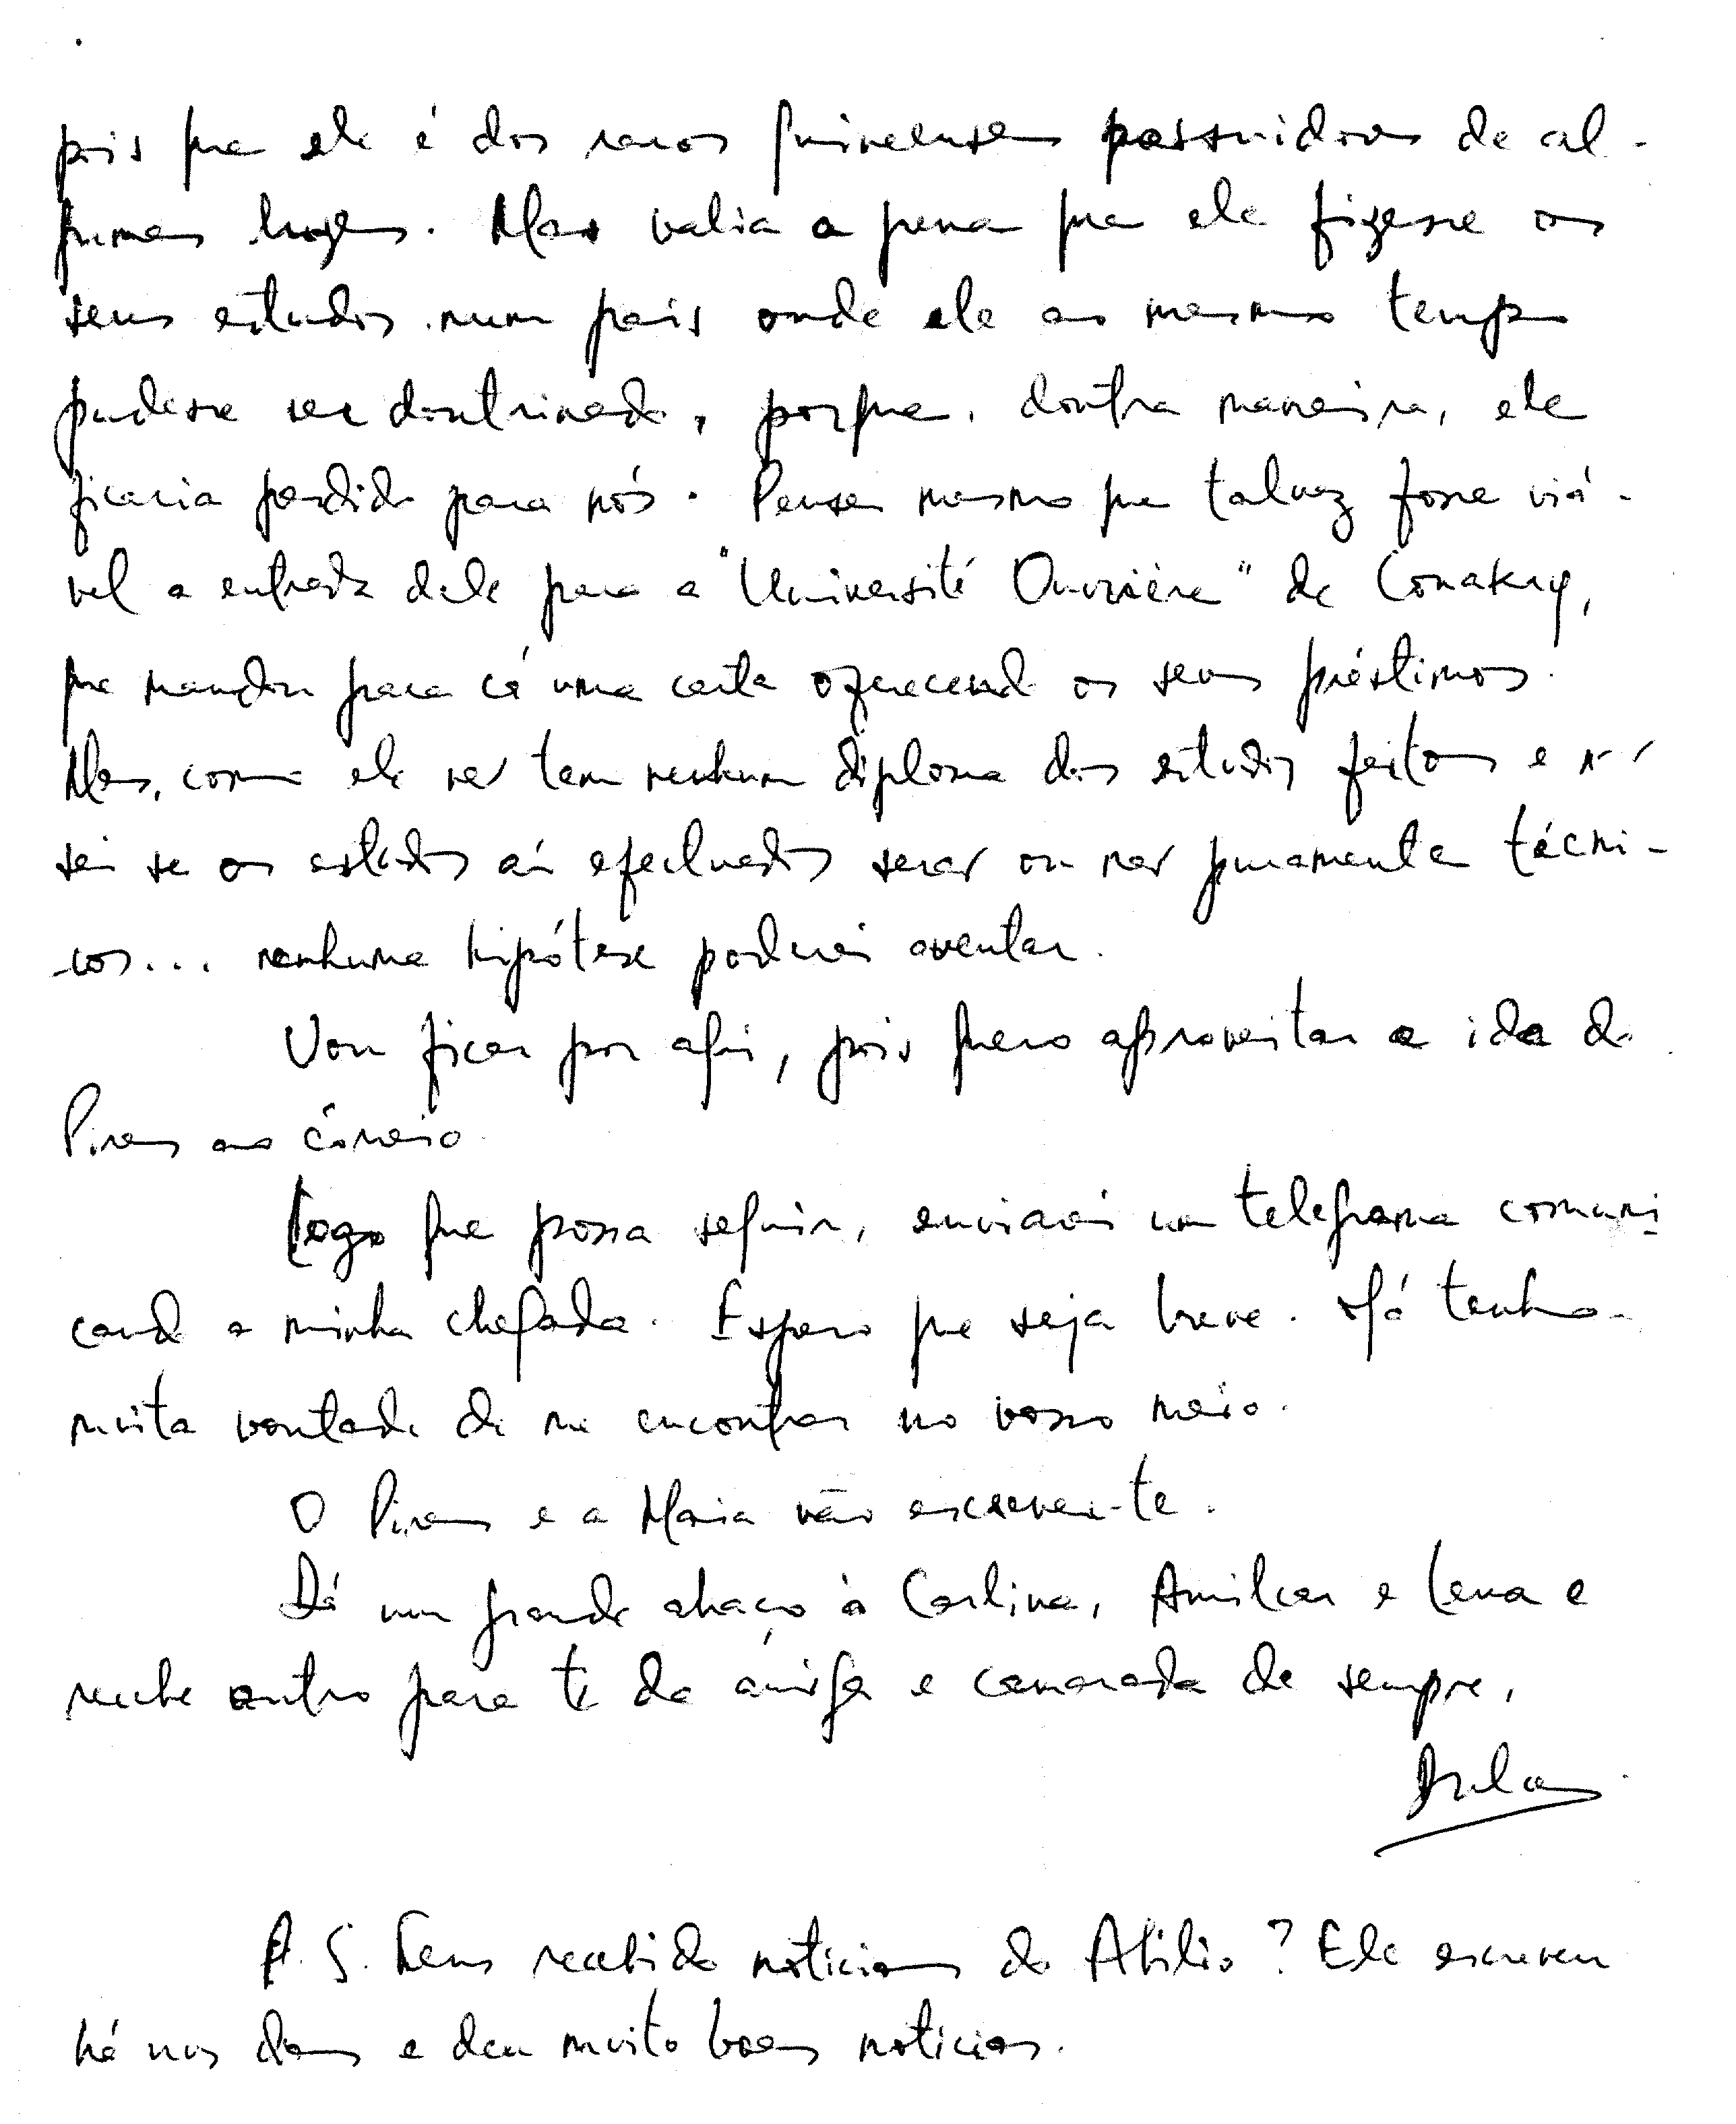 pois que ele é dos raros guineenses possuidores de al-
gumas luzes. Mas valia a pena que ele fizesse os
seus estudos num país onde ele ao mesmo tempo
pudesse ser doutrinado, porque, doutra maneira, ele
ficaria perdido para nós. Pensei mesmo que talvez fosse viá-
vel a entrada dele para a "Université Ouvrière" de Conakry,
que mandou para cá uma carta oferecendo os seus préstimos.
Mas, como ele não tem nenhum diploma dos estudos feitos e não
sei se os estudos aí efectuados serão ou não puramente técni-
cos... nenhuma hipótese poderei aventar.
Vou ficar por aqui, pois quero aproveitar a ida do
Pires ao correio.
Logo que possa seguir, enviarei um telegrama comuni
cando a minha chegada. Espero que seja breve. Já tenho
muita vontade de me encontrar no vosso meio.
O Pires e a Maria vão escrever-te.
Dá um grande abraço à Carlina, Amilcar e Lena e
recebe outro para ti da amiga e camarada de sempre,
P. S. Tens recebido noticias do Abílio? Ele escreveu
há uns dias e deu muito boas noticias.